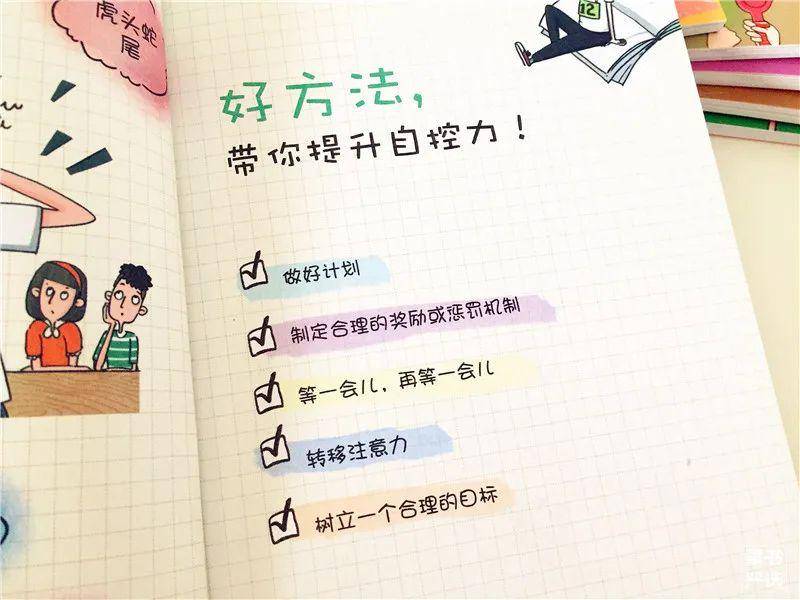 虎头蛇
尾
12
好方法,
带你提升自控力!
做好计划
制定合理的奖励或惩罚机制
等一会儿,再等一会儿
转移注意力
树立一个合理的目标